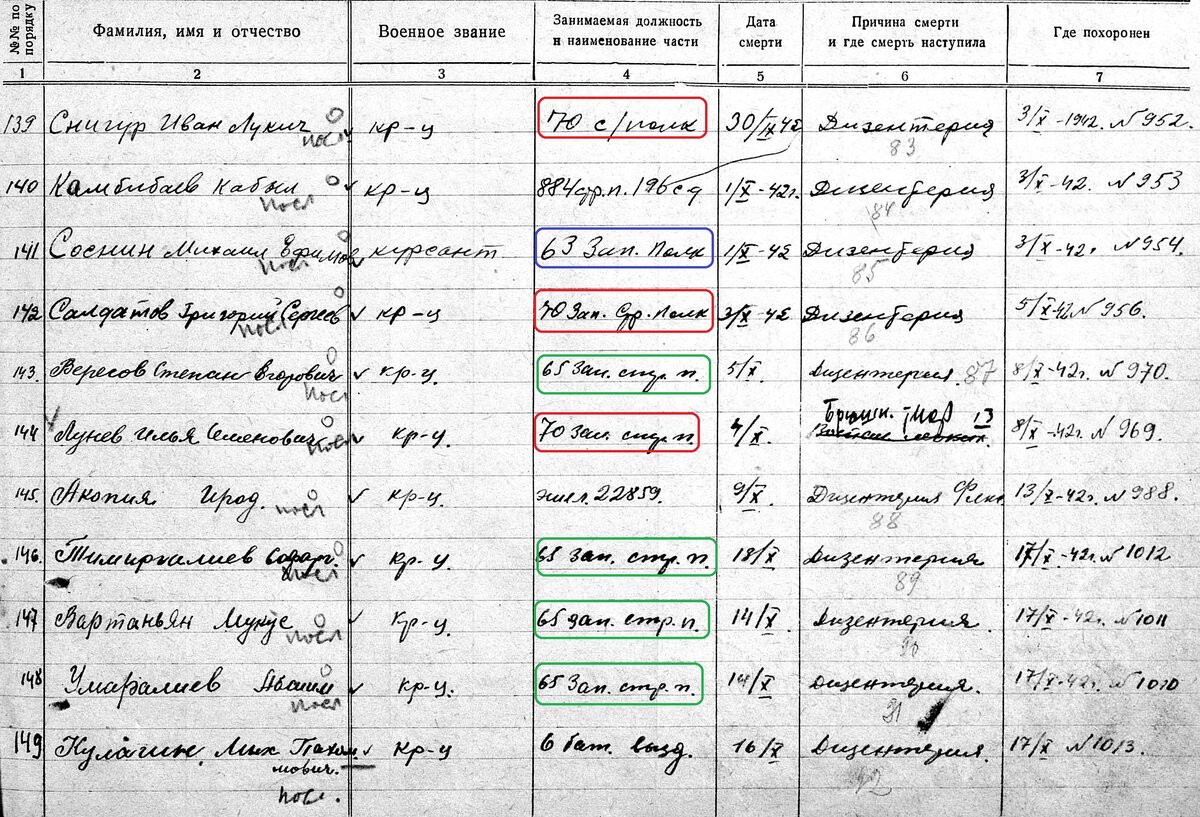 №№ по порядку Фамилия, имя и отчество Военное звание Занимаемая должность и наименование части Дата смерти Причина смерти и где смерть наступила Где похоронен
1 2 3 4 5 6 7
139 Снигур Иван Лукич кр-ц 70 с/полк 30/IX 42 Дизентерия 3/X-1942. N 952.
посл 83
140 Камбибаев Кабыл кр-ц 884 стр.п. 196 сд 1/X-42г. Дизентерия 3/X-42. N 953
посл 84
141 Соснин Михаил Ефимов курсант 63 Зап. Полк 1/X-42 Дизентерия 3/X-42г N 954.
посл 85
142 Салдатов Григорий Сергеев кр-ц 70 Зап. Стр. Полк 3/X-42 Дизентерия 5/X-42 N 956.
посл 86
143. Вересов Степан Егорович кр-ц. 65 Зап. стр. п. 5/X. Дизентерия. 87 8/X-42г. N 970.
посл
Брюшн. тиф 13
144 Лунев Илья Семенович кр-ц. 70 Зап. стр. п. 4/X. 8/X-42г. N 969.
посл
145. Акопия Ирод. кр-ц. эшел. 22859. 9/X. Дизентерия 13/X-42г. N 988.
посл 88
146. Тимиргалиев кр-ц. 65 Зап. стр. п. 18/X Дизентерия 17/X-42г. N 1012
посл 89
147 Вартаньян Мукус кр-ц. 65 зап. стр. п. 14/X. Дизентерия. 17/X-42г. N 1011
посл 90
148 Умаралиев кр-ц. 65 Зап. стр. п. 14/X Дизентерия. 17/X-42г. N 1010
посл 91
149 Кулагин. Мих Пахом кр-ц 6 бат. выzд. 16/X Дизентерия. 17/X N 1013.
мович. 92
посл.